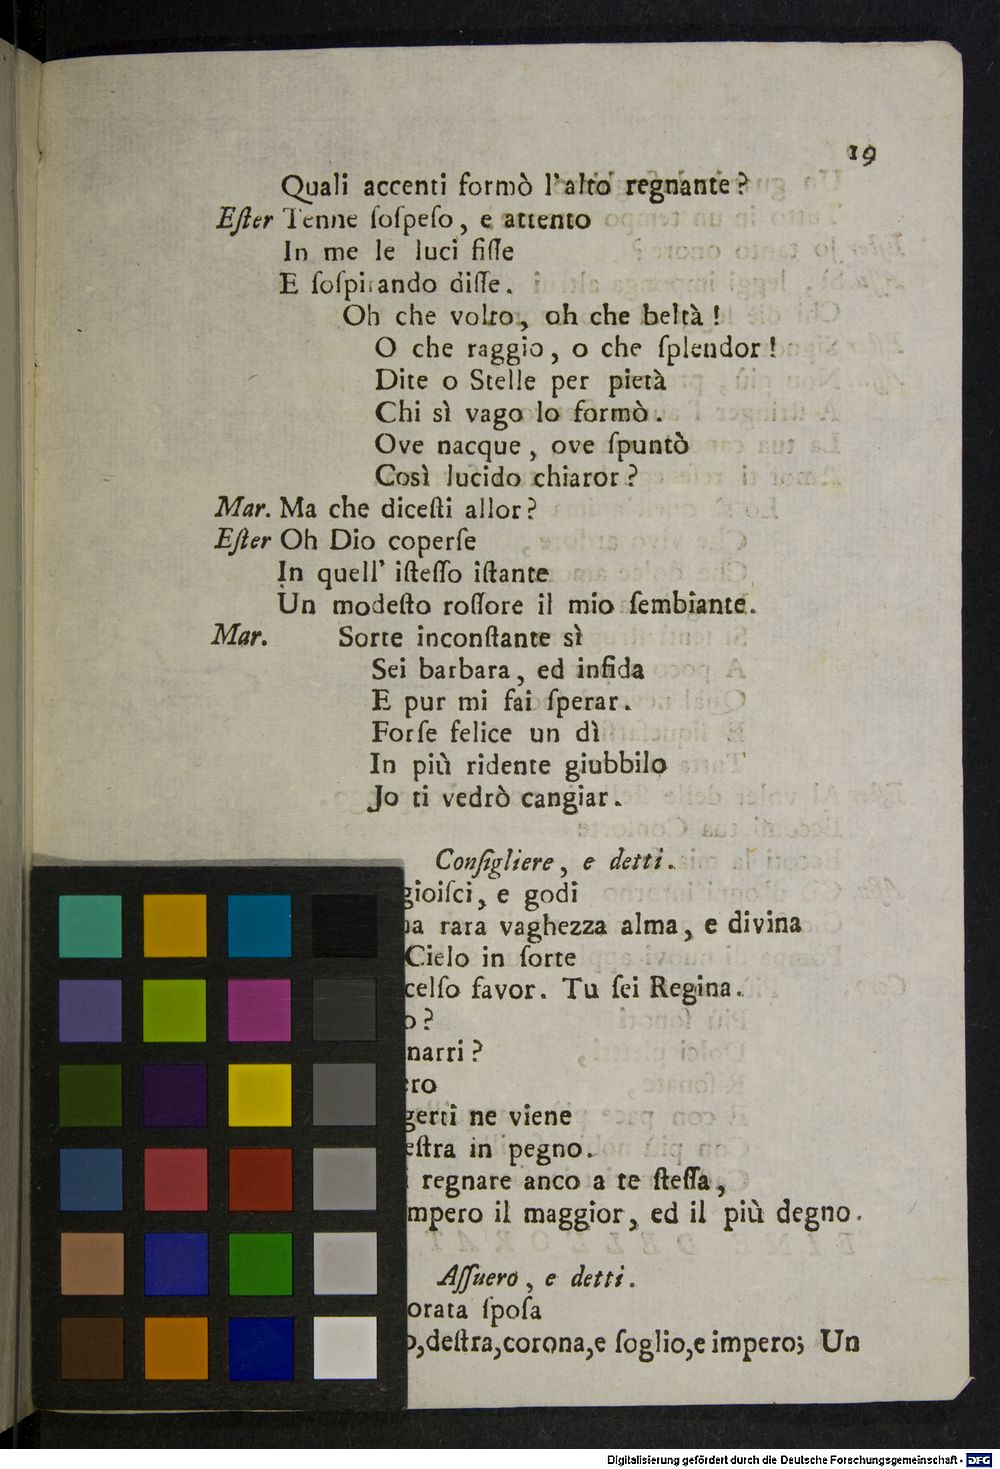 19
Quali accenti formò l'alto regnante?
Eſter Tenne ſoſpeſo, e attento
In me le luci fiſſe
E ſoſpirando diſſe.
Oh che volto, oh che beltà!
O che raggio, o che ſplendor!
Dite o Stelle per pietà
Chi sì vago lo formò.
Ove nacque, ove ſpuntò
Così lucido chiaror?
Mar. Ma che diceſti allor?
Eſter Oh Dio coperſe
In quell' iſteſſo iſtante
Un modeſto roſſore il mio ſembiante.
Mar. Sorte inconſtante sì
Sei barbara, ed infida
E pur mi fai ſperar.
Forſe felice un dì
In più ridente giubbilo
Jo ti vedrò cangiar.
Conſigliere, e detti.
gioiſci, e godi
rara vaghezza alma, e divina
Cielo in ſorte
celſo favor. Tu ſei Regina.
o?
narri?
ro
gerti ne viene
eſtra in pegno.
regnare anco a te ſteſſa,
mpero il maggior, ed il più degno.
Aſſuero, e detti.
orata ſpoſa
o,deſtra,corona,e ſoglio,e impero; Un
Digitalisierung gefördert durch die Deutsche Forschungsgemeinschaft - DFG